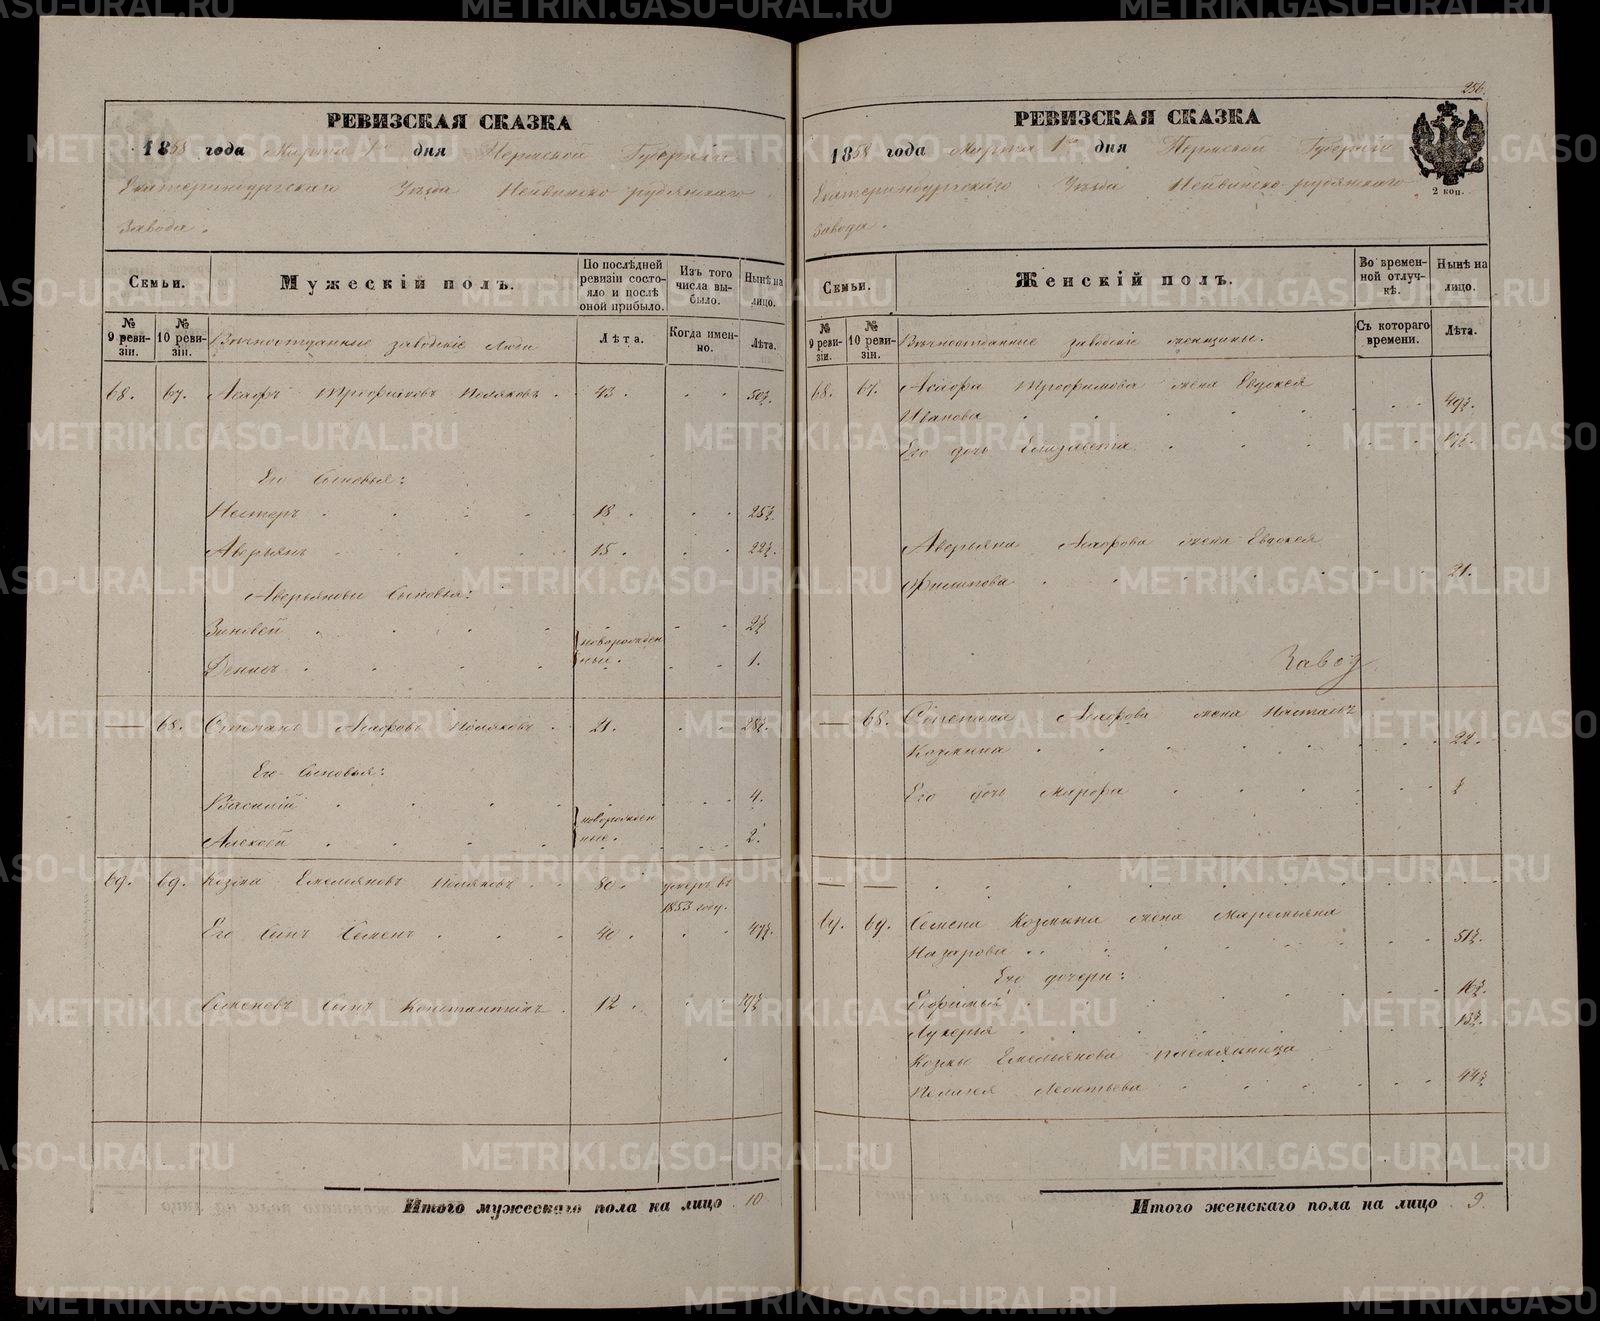 256.
РЕВИЗСКАЯ СКАЗКА
1858 года Марта 1го дня Пермской Губернiи
Екатеринбургскаго Уѣзда Нейвинско-рудянскаго
Завода.
Семьи.
Мужескiй полъ.
По послѣдней ревизiи состояло и послѣ оной прибыло.
Изъ того числа выбыло.
Нынѣ на лицо.
№ 9 ревизiи.
№ 10 ревизiи.
Вѣчноотданные заводскiе Люди
Лѣта.
Когда именно.
Лѣта.
68. 67. Асафъ Трофимовъ Поляковъ 43. 50½
Его Сыновья:
Нестеръ 18. 25½
Аверьянъ 15. 22½
Аверьяновы Сыновья:
Зиновей 2½
новорожденные.
Денис 1.
— 68. Степанъ Асафовъ Поляковъ 21. 28½
Его Сыновья:
Василiй 4.
новорожденные.
Алексей 2.
69. 69. Козма Емельяновъ Поляковъ 80. умеръ въ
1853 году.
Его Сынъ Семенъ 40. 47½
Семеновъ Сынъ Константинъ 12. 19½
Итого мужескаго пола на лицо 10
РЕВИЗСКАЯ СКАЗКА
1858 года Марта 1го дня Пермской Губернiи
Екатеринбургскаго Уѣзда Нейвинско-рудянскаго
Завода.
2 коп.
Семьи.
Женскiй полъ.
Во временной отлучкѣ.
Нынѣ на лицо.
№ 9 ревизiи.
№ 10 ревизiи.
Вѣчноотданные заводскiе женщины.
Съ котораго времени.
Лѣта.
68. 67. Асафа Трофимова жена Евдокея
Иванова 49½
Его дочь Елизавета 17½
Аверьяна Асафова жена Евдокея
Филипова 21.
Завод
— 68. Степана Асафова жена Настасья
Козмина 22.
Его дочь Марфа ½
— —
69. 69. Семена Козмина жена Маремьяна
Назарова 51½
Его дочери:
Евфимья 16½
Лукерья 13½
Козмы Емельянова племянница
Пелагея Леонтьева 44½
Итого женскаго пола на лицо 9.
METRIKI.GASO-URAL.RU